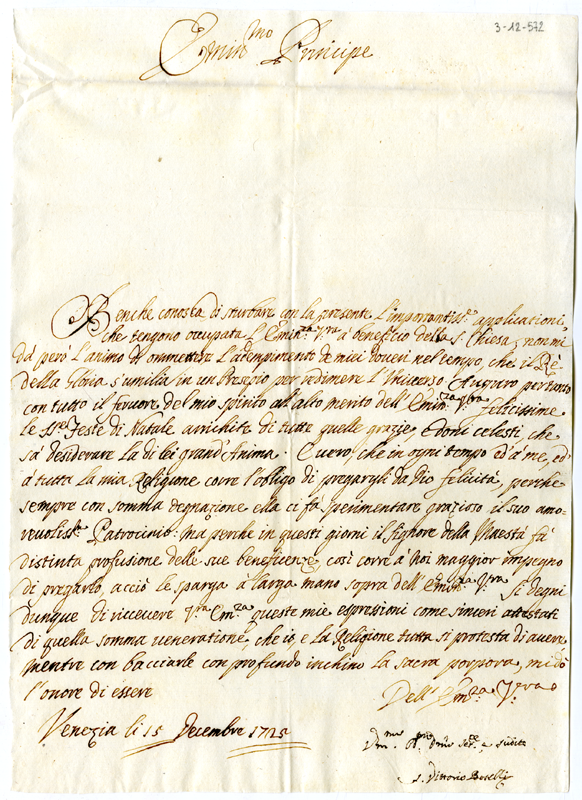 3-12-572
Emin.mo Principe
Benche conosca di sturbare con la presente l'importantiss.e applicationi,
che tengono occupata l'Emin.za V.ra à beneficio della S. Chiesa, non mi
dà però l'animo d'ommettere l'adempimento de miei doveri nel tempo, che il Rè
della Gloria s'umilia in un Presepio per redimere l'Universo. Auguro pertanto
con tutto il fervore del mio spirito all'alto merito dell'Emin.za V.ra felicissime
le SS.e Feste di Natale arrichite di tutte quelle grazie, e doni celesti, che
sà desiderare la di lei grand'Anima. E vero, che in ogni tempo ed à me, ed
à tutta la mia Religione corre l'obligo di pregargli da Dio felicità, perche
sempre con somma degnazione ella ci fà sperimentare grazioso il suo amo-
revoliss.o Patrocinio: ma perche in questi giorni il Signore della Maestà fà
distinta profusione delle sue beneficenze, così corre à Noi maggior impegno
di pregarlo, acciò le sparga à larga mano sopra dell'Emin.za V.ra Si degni
dunque di ricevere V.ra Em.za queste mie espresioni come sinceri attestati
di quella somma veneratione, che io, e la Religione tutta si protesta di avere,
mentre con bacciarle con profondo inchino la sacra porpora, mi dò
l'onore di essere
Dell'Em.za V.ra
Venezia li 15 Decembre 1725
Vm.mo
s. Vittorio Boselli